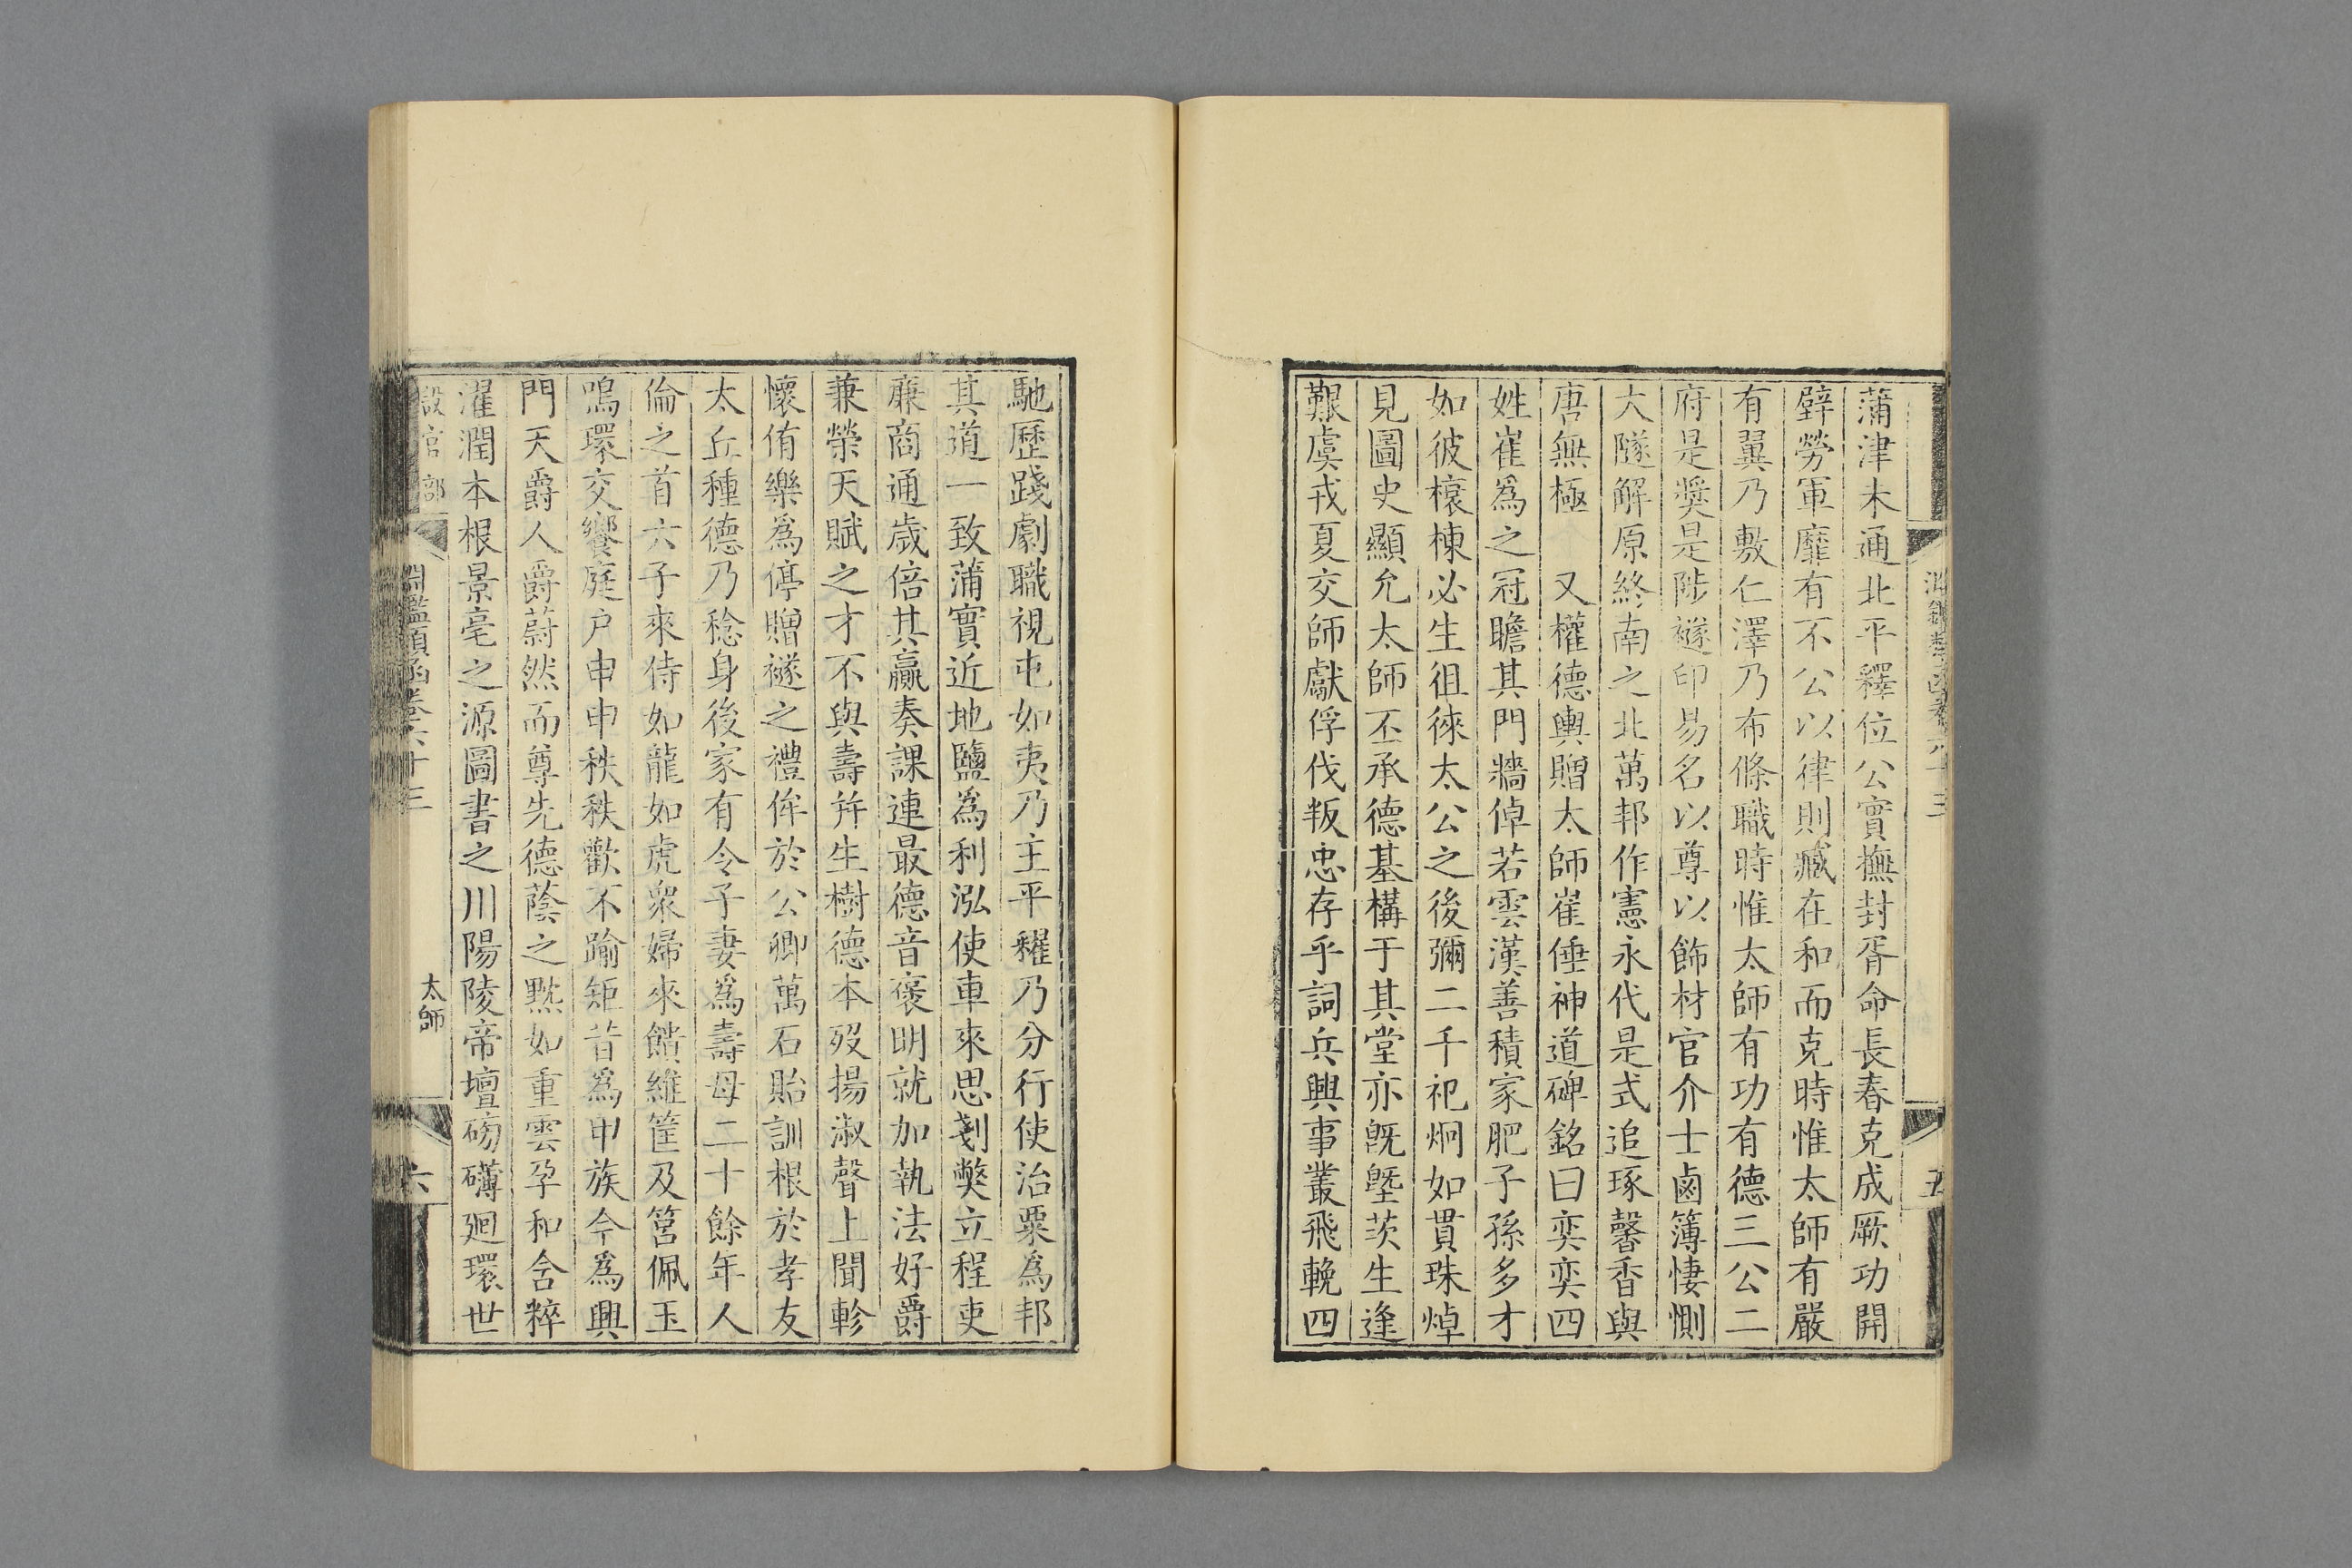 蒲津未通北平釋位公實撫封胥命長春克成厥功開
辟勞軍靡有不公以律則臧在和而克時惟太師有嚴
有翼乃敷仁澤乃布條職時惟太師有功有德三公二
府是奬是陟襚印易名以尊以飾材官介士鹵簿悽惻
大隧解原終南之北萬邦作憲永代是式追琢馨香與
唐無極　又權德輿贈太師崔倕神道碑銘曰奕奕四
姓崔爲之冠瞻其門牆倬若雲漢善積家肥子孫多才
如彼榱棟必生徂徠太公之後彌二千祀炯如貫珠焯
見圖史顯允太師丕承德基構于其堂亦旣塈茨生逢
艱虞戎夏交師獻俘伐叛忠存乎詞兵興事叢飛輓四
馳歷踐劇職視屯如夷乃主平糴乃分行使治粟爲邦
其道一致蒲實近地鹽爲利泓使車來思剗獘立程吏
廉商通歲倍其贏奏課連最德音褒明就加執法好爵
兼榮天賦之才不與壽并生樹德本歿揚淑聲上聞軫
懷侑樂爲停贈襚之禮侔於公卿萬石貽訓根於孝友
太丘種德乃稔身後家有令子妻爲壽母二十餘年人
倫之首六子來侍如龍如虎衆婦來饋維筐及筥佩玉
鳴環交響庭戶申申秩秩歡不踰矩昔爲甲族今爲興
門天爵人爵蔚然而尊先德蔭之黙如重雲孕和含粹
濯潤本根景亳之源圖書之川陽陵帝壇磅礴廻環世
設官部
淵鑑類函卷六十三
太師
六